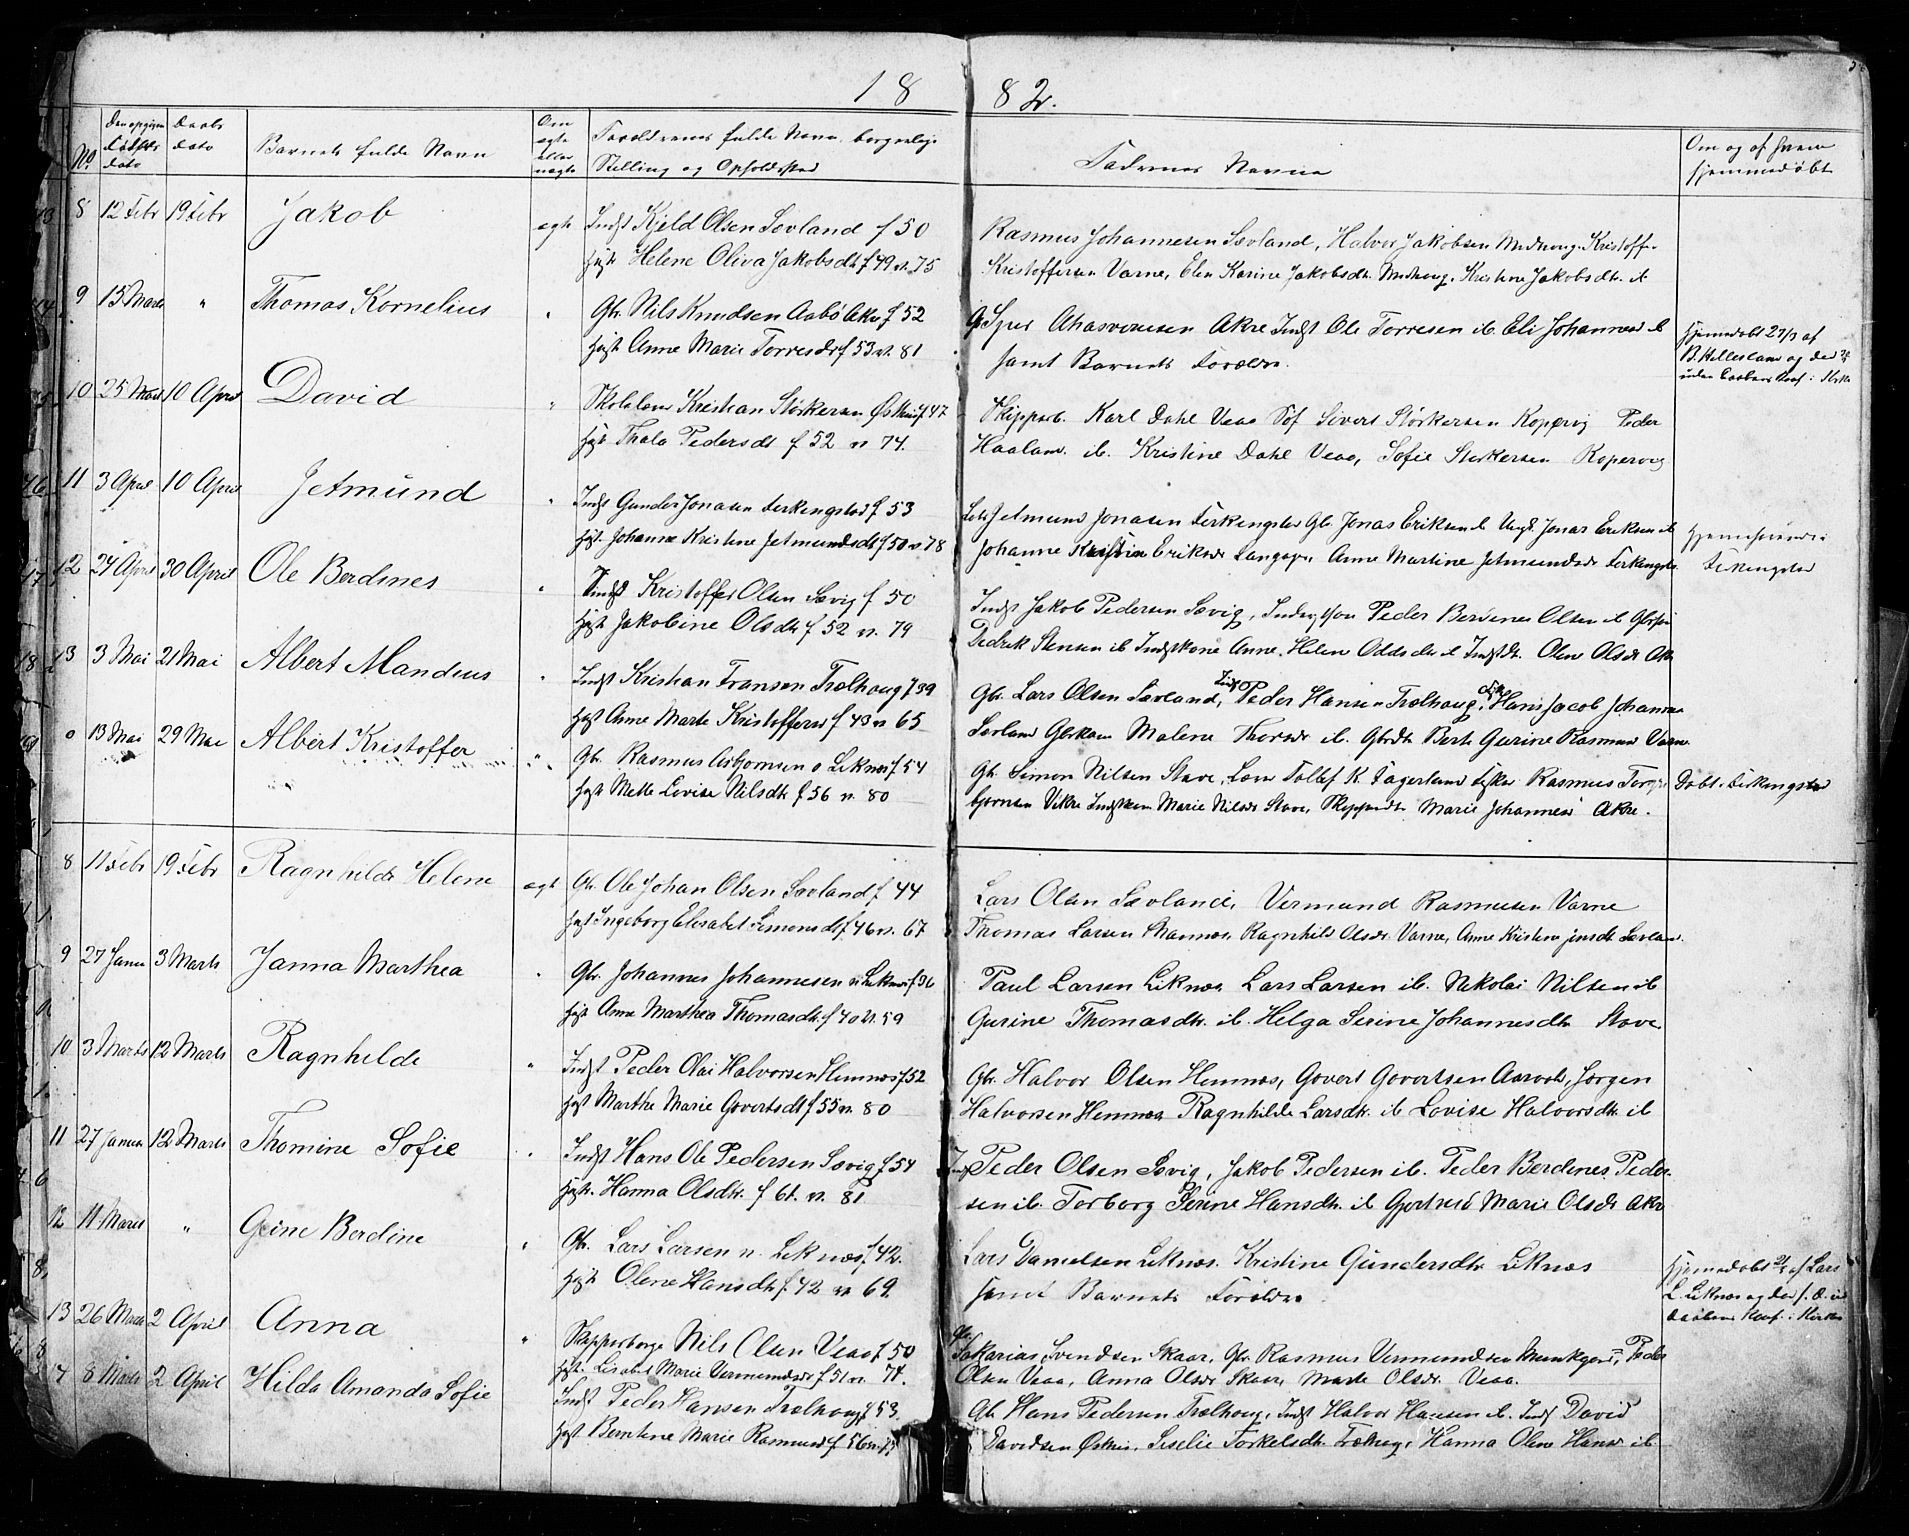 18 82.
No
Den opgivne Fødsels dato
Daabs dato
Barnets fulde Navn
Om ægte eller uægte
Forældrenes fulde Navn, borgerlige
Stilling og Opholdssted
Fadrenes Navne
Om og af hvem
hjemmedøbt
8 12 Febr 19 Febr Jakob ægte Indst Kjeld Olsen Sævland f 50
Hust Helene Oliva Jakobsdtr f 49 v. 75
Rasmus Johannesen Sævland, Halvor Jakobsen Medhoug, Kristoffer
Kristoffersen Varne, Elen Karine Jakobsdtr. Medhoug, Kristine Jakobsdtr. ib
9 15 Marts " Thomas Kornelius " Gbr. Nils Knudsen Aabø Akre f 52
Hust Anne Marie Torresdr f 53 v. 81
Ahasverusen Akre Indst Ole Torresen ib. Eli Johannesd ib
samt Barnets Forældre.
Hjemmedøbt 27/3 af
10 25 Marts 10 April David " Kristian Størkersen f 47
Hust Thala Pedersdt f 52 v 74.
Skipperb. Karl Dahl Veaa Sivert Størkersen Kopervig Peder
Haaland ib. Kristine Dahl Veaa, Sofie Størkersen Kopervig
11 3 April 10 April Jetmund " Indst Gunder Jonasen Ferkingstad f 53
Hust. Johanne Kristine Jetmundsdt f 50 v 78
Jetmund Jonasen Ferkingstad Gbr. Jonas Eriksen ib Ungk. Jonas Eriksen ib
Johanne Kristine Eriksdr Langager, Anne Martine Jetmundsdr Ferkingstad
Ferkingstad
12 24 April 30 April Ole Berdines " Indst Kristoffer Olsen Sævig f 50
Hust Jakobine Olsdtr f 52 v. 79
Indst Jakob Pedersen Sævig, Peder Berdines Olsen ib
Didrik Stensen ib Indstkone Anne Helene Oddsdtr ib Indstdt. Olene Olsdr Akr
13 3 Mai 21 Mai Albert Mandius " Indst Kristian Fransen Trælhoug f 39
Hust Anne Marte Kristoffersd f 43 v 65
Gbr. Lars Olsen Sævland, Indst Peder Hansen Trælhoug, Hans Jacob Johanne
Sævland Gbrkone Malene Thorsdr ib. Gbrdt Berte Gurine Rasmusd Varne
13 Mai 29 Mai Albert Kristoffer " Gbr. Rasmus Asbjornsen ø Liknæs f 54
Hust Mette Lovise Nilsdtr f 56 v. 80
Gbr. Simon Nilsen Stave, Tollef K Fagerland Rasmus Tor
bjornsen Vikre Indstkone Marie Nilsdr Stave, Skipperdtr Marie Johannesd Akre.
Døbt i Ferkingstad
8 11 Febr 19 Febr Ragnhilde Helene ægte Gbr. Ole Johan Olsen Sævland f 44
Hust Ingeborg Elisabet Simonsdt f. 46 v. 67
Lars Olsen Sævland, Vermund Rasmusen Varne
Thomas Larsen Mannes, Ragnhild Olsdr. Varne, Anne Kristine Jensdt Sævland.
9 27 Januar 3 Marts Janna Marthea " Gbr. Johannes Johannesen n Liknæs f 36
Hust Anne Marthea Thomasdtr. f 40 v. 59
Paul Larsen Liknæs Lars Larsen ib. Nikolai Nilsen ib
Gurine Thomasdtr. ib. Helga Serine Johannesdtr Stave
10 3 Marts 12 Marts Ragnhilde " Indst Peder Olai Halvorsen Hemnæs f 52
Hust Marthe Marie Govertsdt f 55 v. 80
Gbr. Halvor Olsen Hemnæs, Govert Govertsen Aarvold, Jørgen
Halvorsen Hemnæs Ragnhilde Larsdtr. ib Lovise Halvorsdtr ib
11 27 Januar 12 Marts Thomine Sofie " Indst Hans Ole Pedersen Sævig f 54
Hust. Hanna Olsdtr. f 61. v. 81
Indst Peder Olsen Sævig, Jakob Pedersen ib. Peder Berdines Peder
sen ib. Torborg Serine Hansdtr. ib Gjertrud Marie Olsdr Akr
12 11 Marts " Geine Berdine " Gbr. Lars Larsen n. Liknæs f 42.
Hust Olene Hansdtr f. 42 v 69.
Lars Danielsen Liknæs. Kristine Gundersdtr Liknæs
samt Barnets Forældre.
Hjemmedøbt af Lars
L. Liknæs
13 26 Marts 2 April Anna " Skipperborger Nils Olsen Veaa f 50
Hust. Lisabet Marie Vermundsdr f 51 v. 74.
Gbr. Sakarias Svendsen Skaar, Gbr. Rasmus Vermundsen Munkejord, Peder
Olsen Veaa, Anna Olsdr Skaar, Marte Olsdr. Veaa.
8 Marts 2 April Hilda Amanda Sofie Indst Peder Hansen Trælhoug f 53.
Hust Berntine Marie Rasmusd f 56 v. 75
Gbr Hans Pedersen Trælhoug, Indst Halvor Hansen ib. Indst David
Davidsen Østhus, Siselie Torkelsdtr. Trælhoug, Hanna Olene Hansd ib